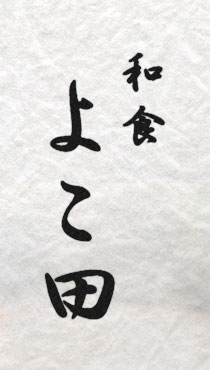 和食
よこ田